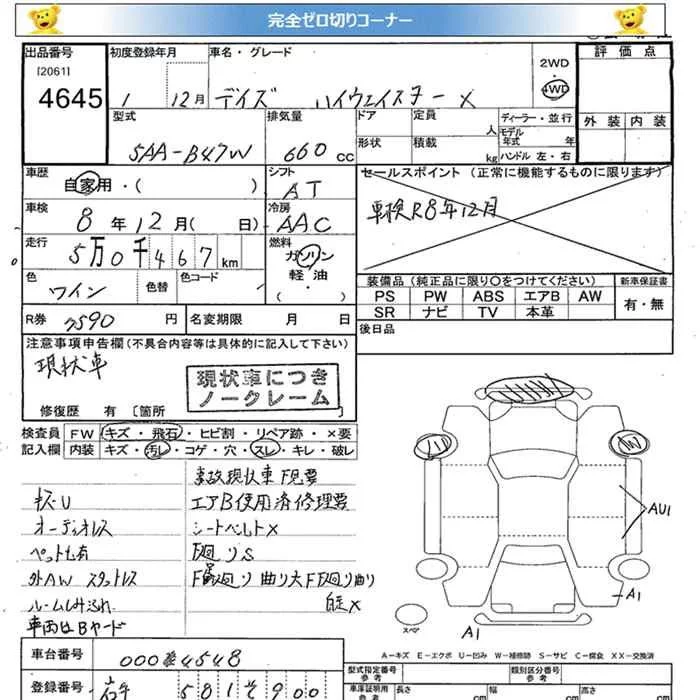 完全ゼロ切りコーナー
出品番号 初度登録年月 車名・グレード 評価点
[2061]
4645 1 12月 デイズ ハイウェイスター X 2WD 4WD
型式 排気量 ドア 定員 人 ディーラー・並行 外装 内装
5AA-B47W 660 CC 形状 積載 kg モデル年式 年 ハンドル 左・右
車歴 シフト セールスポイント (正常に機能するものに限ります)
自家用・( ) AT
車検 8年12月( 日) 冷房 AAC 車検R8年12月
走行 5万0千467km 燃料 ガソリン
軽油
( ・ )
色 ワイン 色替 色コード 装備品 (純正品に限り○をつけてください) 新車保証書
PS PW ABS エアB AW 有・無
SR ナビ TV 本革
R券 7590 円 名変期限 月 日 後日品
注意事項申告欄(不具合内容等は具体的に記入して下さい)
現状車
現状車につき
ノークレーム
修復歴 有 [箇所 ]
検査員 FW キズ・飛石・ヒビ割・リペア跡・×要
記入欄 内装 キズ・汚レ・コゲ・穴・スレ・キレ・破レ
事故現状車 下見要
キズU エアB使用済修理要
オーディオレス シートベルト×
ペット毛有 下廻りS
外AW スタットレス 曲り大 F下廻り曲り
ルームしみ汚れ 自走×
車両はBヤード
W
AU1
A1
スペア A1
A-キズ E-エクボ U-凹み W-補修跡 S-サビ C-腐食 XX-交換済
車台番号 4548
型式指定番号 参考 類別区分番号 参考
登録番号 岩手 581 900
車庫証明用 参考 長さ cm 幅 cm 高さ cm